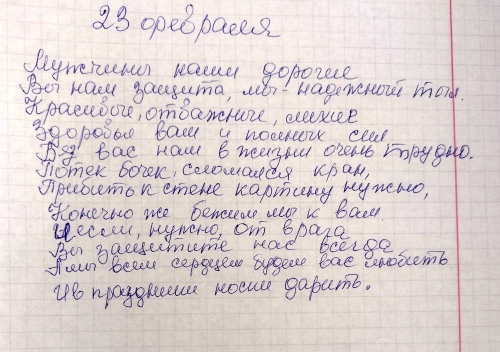 23 февраля
Мужчины наши дорогие
Вы нам защита, мы - надежный тыл.
Красивые, отважные, лихие
Здоровья вам и полных сил
Без вас нам в жизни очень трудно.
Потек бочек, сломался кран,
Прибить к стене картину нужно,
Конечно же бежим мы к вам.
И если, нужно, от врага
Вы защитите нас всегда
А мы всем сердцем будем вас любить
И в праздники носки дарить.